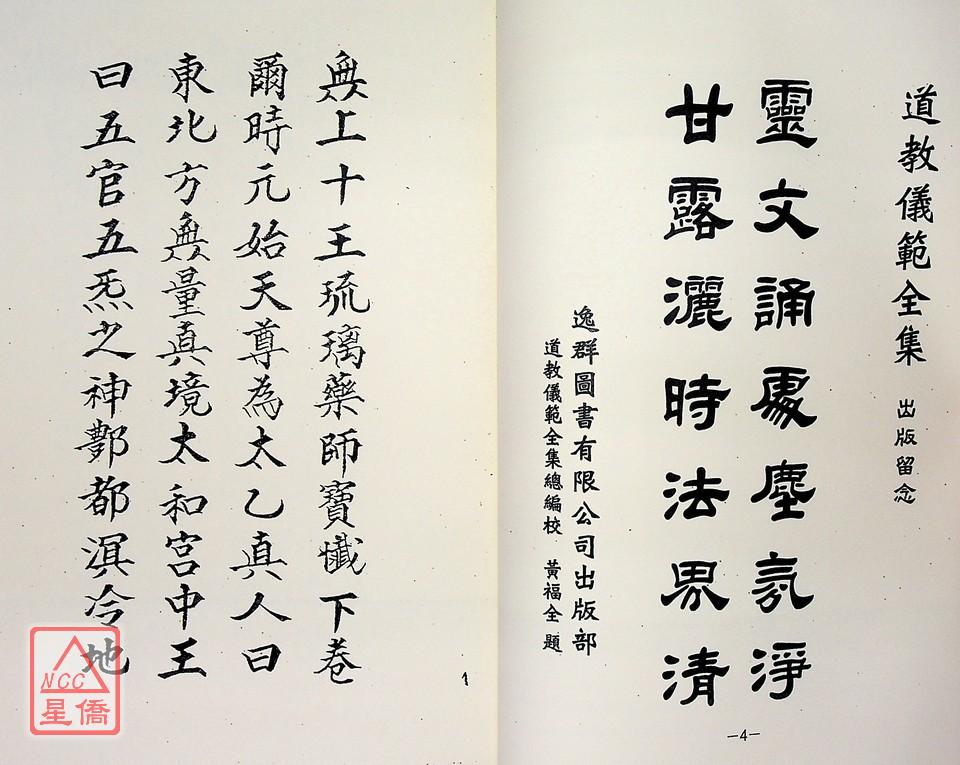 道教儀範全集 出版留念
靈文誦處塵氛淨
甘露灑時法界清
逸群圖書有限公司出版部
道教儀範全集總編校 黃福全題
—4—
無上十王琉璃藥師寶懺下卷
爾時元始天尊為太乙真人曰
東北方無量真境太和宮中王
曰五官五炁之神酆都溟冷地
1
NCC
星僑